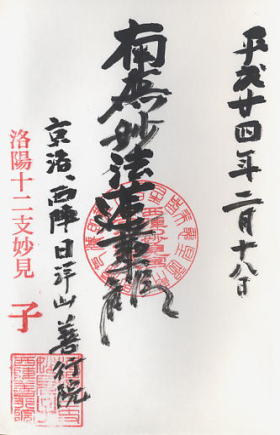 平成廿四年二月十八日
南無妙法蓮華経
京洛、西陣日蓮山善行院
洛陽十二支妙見 子